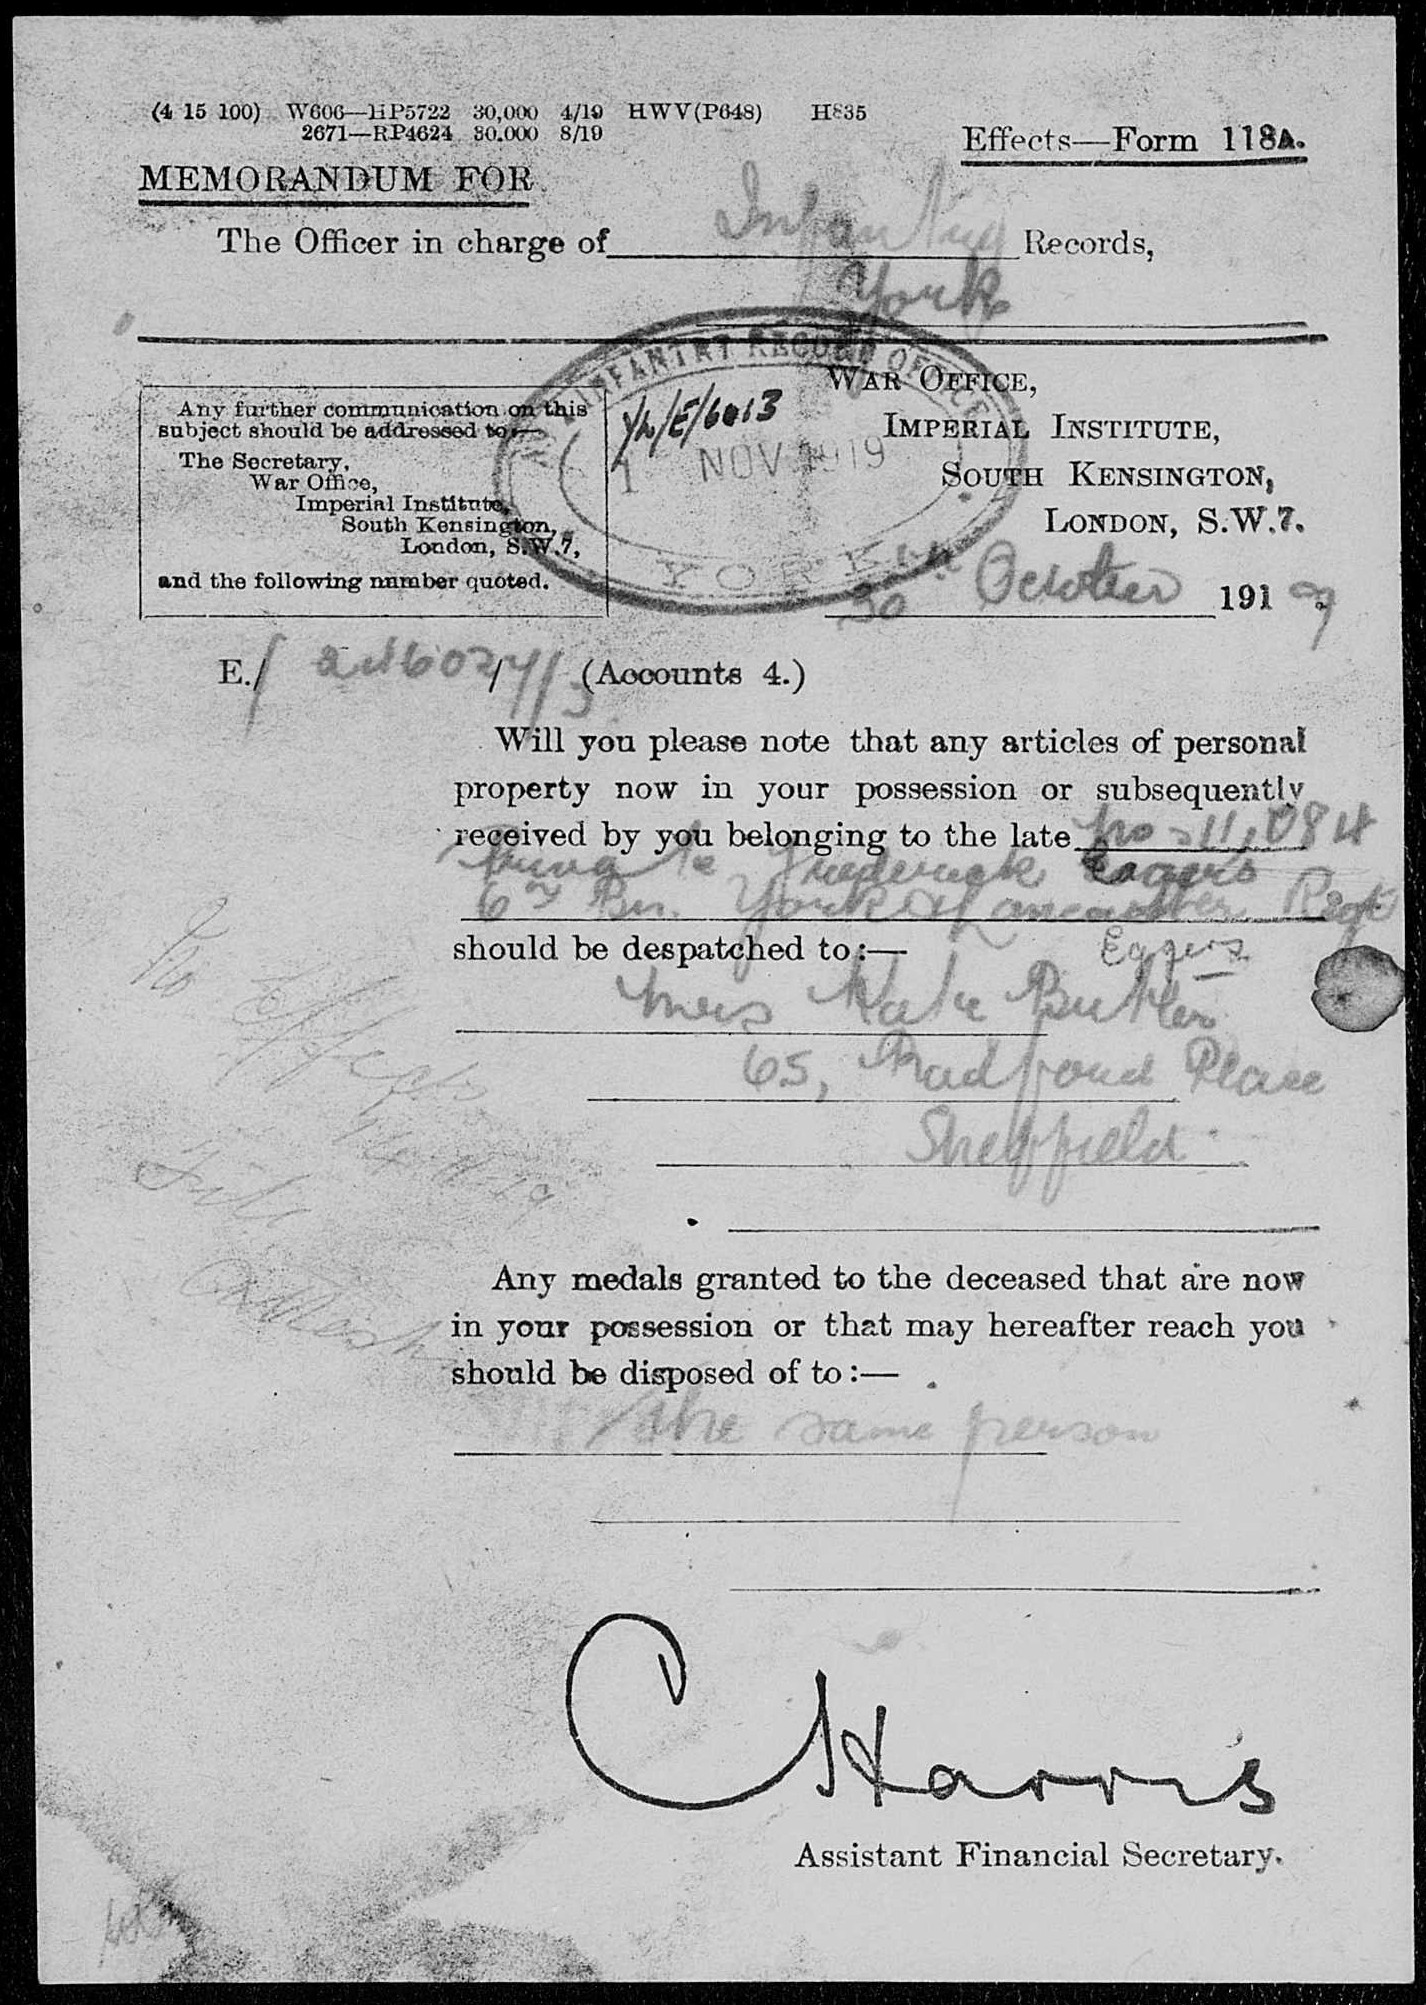 (4 15 100) W606—HP5722 30,000 4/19 HWV(P648) H835
2671—RP4624 30.000 8/19
Effects—Form 118A.
MEMORANDUM FOR
The Officer in charge of Infantry Records,
York
INFANTRY RECORD OFFICE
1 NOV 1919
YORK
WAR OFFICE,
IMPERIAL INSTITUTE,
SOUTH KENSINGTON,
LONDON, S.W.7.
30th October 1919
Any further communication on this
subject should be addressed to:—
The Secretary,
War Office,
Imperial Institute,
South Kensington,
London, S.W.7,
and the following number quoted.
E./ (Accounts 4.)
Will you please note that any articles of personal
property now in your possession or subsequently
received by you belonging to the late No
Private Frederick Eggers
6th Bn. York & Lancaster Regt
should be despatched to:— Eggers
Mrs Kate Butler
65, Radford Place
Sheffield
No Effects
File
Any medals granted to the deceased that are now
in your possession or that may hereafter reach you
should be disposed of to:—
the same person
C Harris
Assistant Financial Secretary.